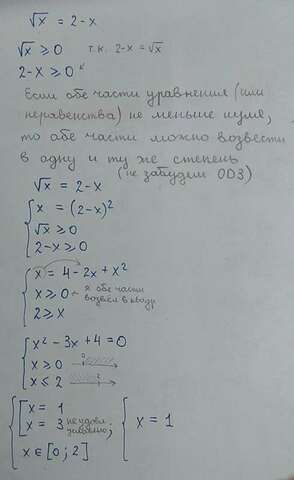 √x = 2-x
√x ≥ 0 т.к. 2-x = √x
2-x ≥ 0
Если обе части уравнения (или
неравенства) не меньше нуля,
то обе части можно возвести
в одну и ту же степень
(не забудем ОДЗ)
√x = 2-x
x = (2-x)²
√x ≥ 0
2-x ≥ 0
x = 4-2x+x²
x ≥ 0 - я обе части
возвёл в квадр
2 ≥ x
x² - 3x + 4 = 0
x ≥ 0 0
x ≤ 2 2
x = 1
x = 3 не удов. ; x = 1
x ∈ [0; 2]